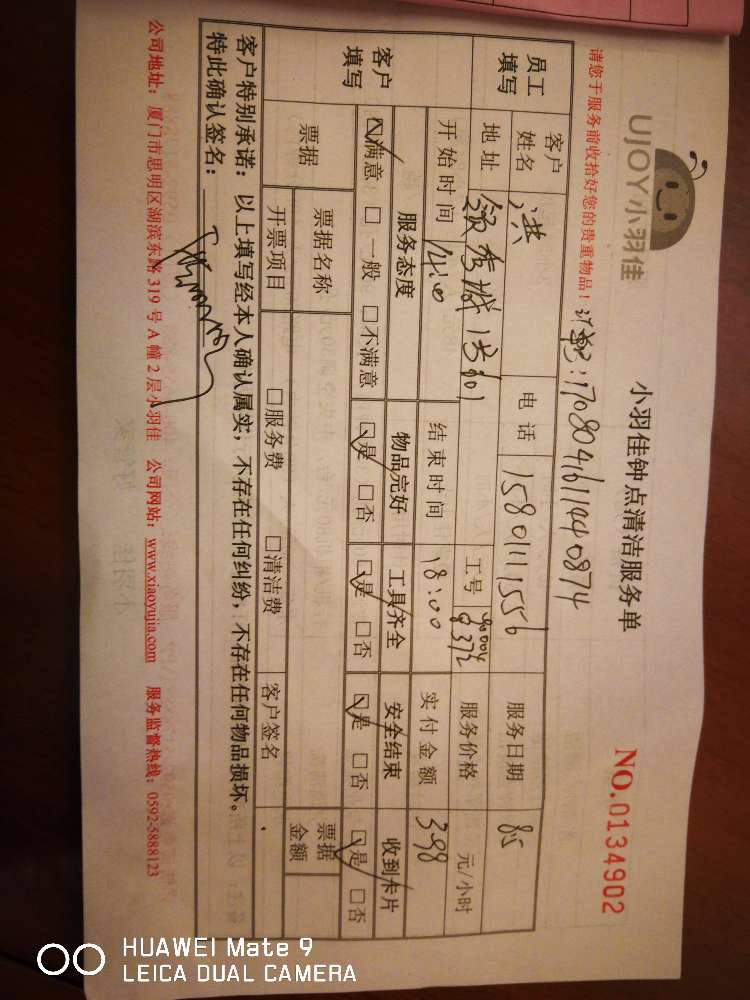 UJOY小羽佳
小羽佳钟点清洁服务单
NO.0134902
请您于服务前收拾好您的贵重物品！
1708041611440874
员工填写
客户姓名 洪 电话 15801111556 服务日期 8.5
地址 1号301 工号 服务价格 元/小时
开始时间 14:00 结束时间 18:00 实付金额 398
客户填写
服务态度 物品完好 工具齐全 安全结束 收到卡片
☑满意 □一般 □不满意 ☑是 □否 ☑是 □否 ☑是 □否 ☑是 □否
票据 票据名称 票据金额
开票项目 □服务费 □清洁费 客户签名
客户特别承诺：以上填写经本人确认属实，不存在任何纠纷，不存在任何物品损坏。
特此确认签名：
公司地址：厦门市思明区湖滨东路319号A幢2层小羽佳 公司网站：www.xiaoyujia.com 服务监督热线：0592-5888123
HUAWEI Mate 9
LEICA DUAL CAMERA